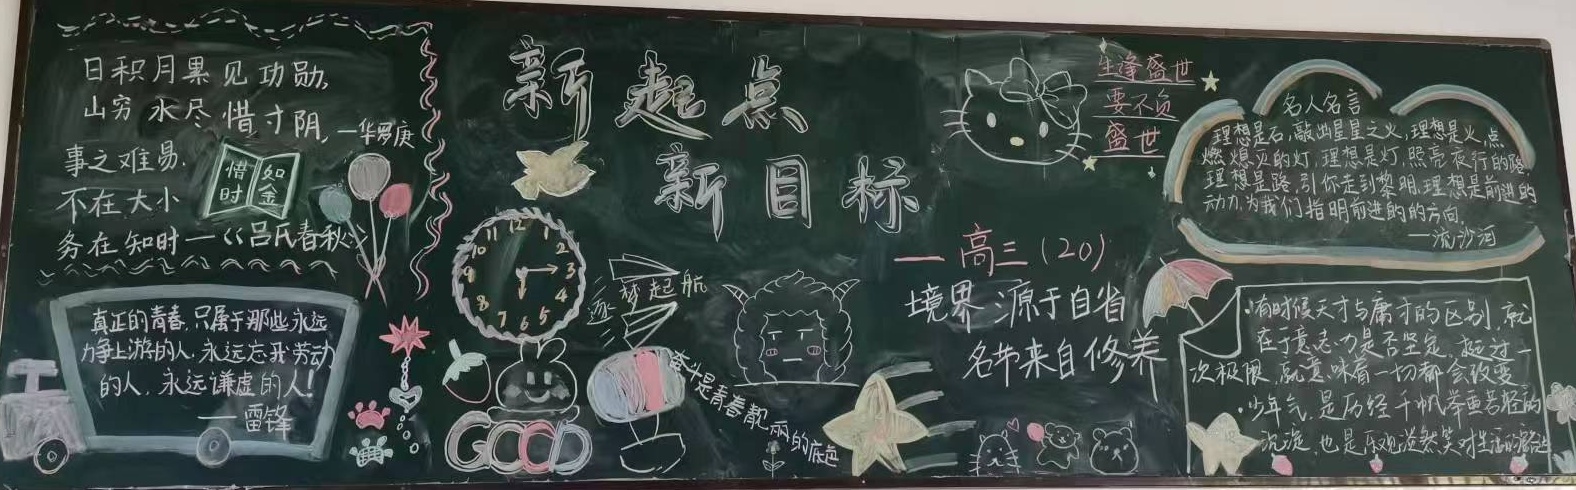 日积月累见功勋,
山穷水尽惜寸阴,
—华罗庚
事之难易.
不在大小
务在知时—《吕氏春秋》
惜时
如金
真正的青春,只属于那些永远
力争上游的人,永远忘我劳动
的人,永远谦虚的人!
——雷锋
新起点
新目标
12 1 2 3 4 5 6 7 8 9 10 11
逐梦起航
GOOD
奋斗是青春靓丽的底色
—高三(20)
境界源于自省
名节来自修养
生逢盛世
要不负
盛世
名人名言
理想是石,敲出星星之火,理想是火,点
燃熄灭的灯,理想是灯,照亮夜行的路
理想是路,引你走到黎明.理想是前进的
动力,为我们指明前进的的方向.
—流沙河
·有时候天才与庸才的区别,就
在于意志力是否坚定,挺过一
次极限,就意味着一切都会改变
·少年气,是历经千帆举重若轻的
沉淀,也是乐观淡然笑对生活的豁达